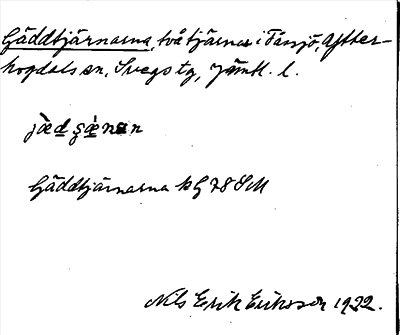 Gäddtjärnarna, två tjärnar i Tansjö, Ytter-
hogdals sn, Svegs tg, Jämtl. l.
Gäddtjärnarna bG 78 SM
Nils Erik Eriksson 1922.